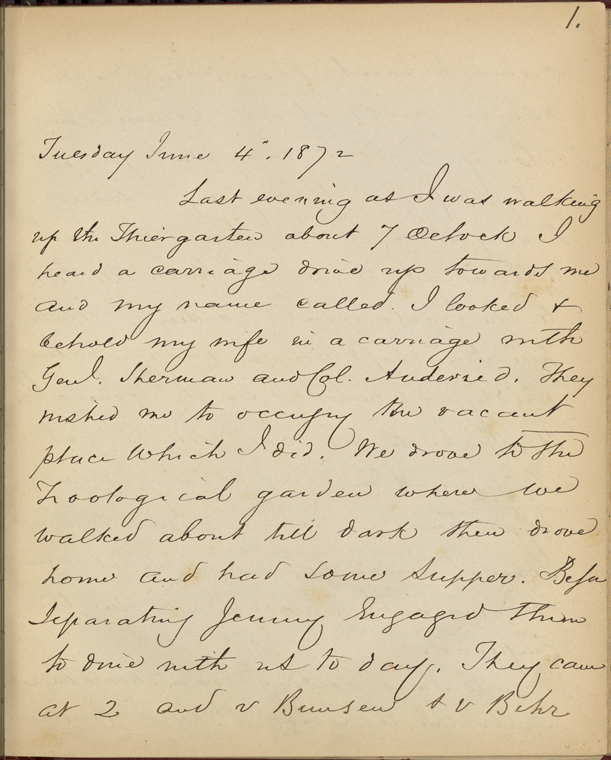 1.
Tuesday June 4". 1872
Last evening as I was walking
up the Thiergarten about 7 Oclock I
heard a carriage drive up towards me
and my name called. I looked &
behold my wife in a carriage with
Genl. Sherman and Col. Audenried. They
wished me to occupy the vacant
place which I did. We drove to the
Zoological garden where we
walked about till dark then drove
home and had some supper. Before
separating Jenny Engaged them
to dine with us to day. They came
at 2 and v Bunsen & v Behr